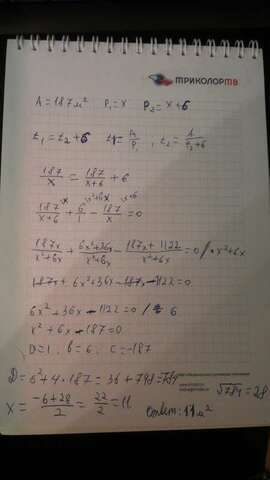 ТРИКОЛОРТВ
A = 187 м² P₁ = x P₂ = x + 6
t₁ = t₂ + 6 t₁ = A/P₁ , t₂ = A/
187/x = 187/x+6 + 6
187/x+6 + 6/1 - 187/x = 0
187x/x²+6x + 6x²+36x/x²+6x - 187x+1122/x²+6x = 0 / · x²+6x
187x + 6x² + 36x - 187x - 1122 = 0
6x² + 36x - 1122 = 0 / : 6
x² + 6x - 187 = 0
a = 1, b = 6, c = -187
D = 6² + 4 · 187 = 36 + 748 = 784
√784 = 28
x = -6+28/2 = 22/2 = 11
ответ: 11 м²